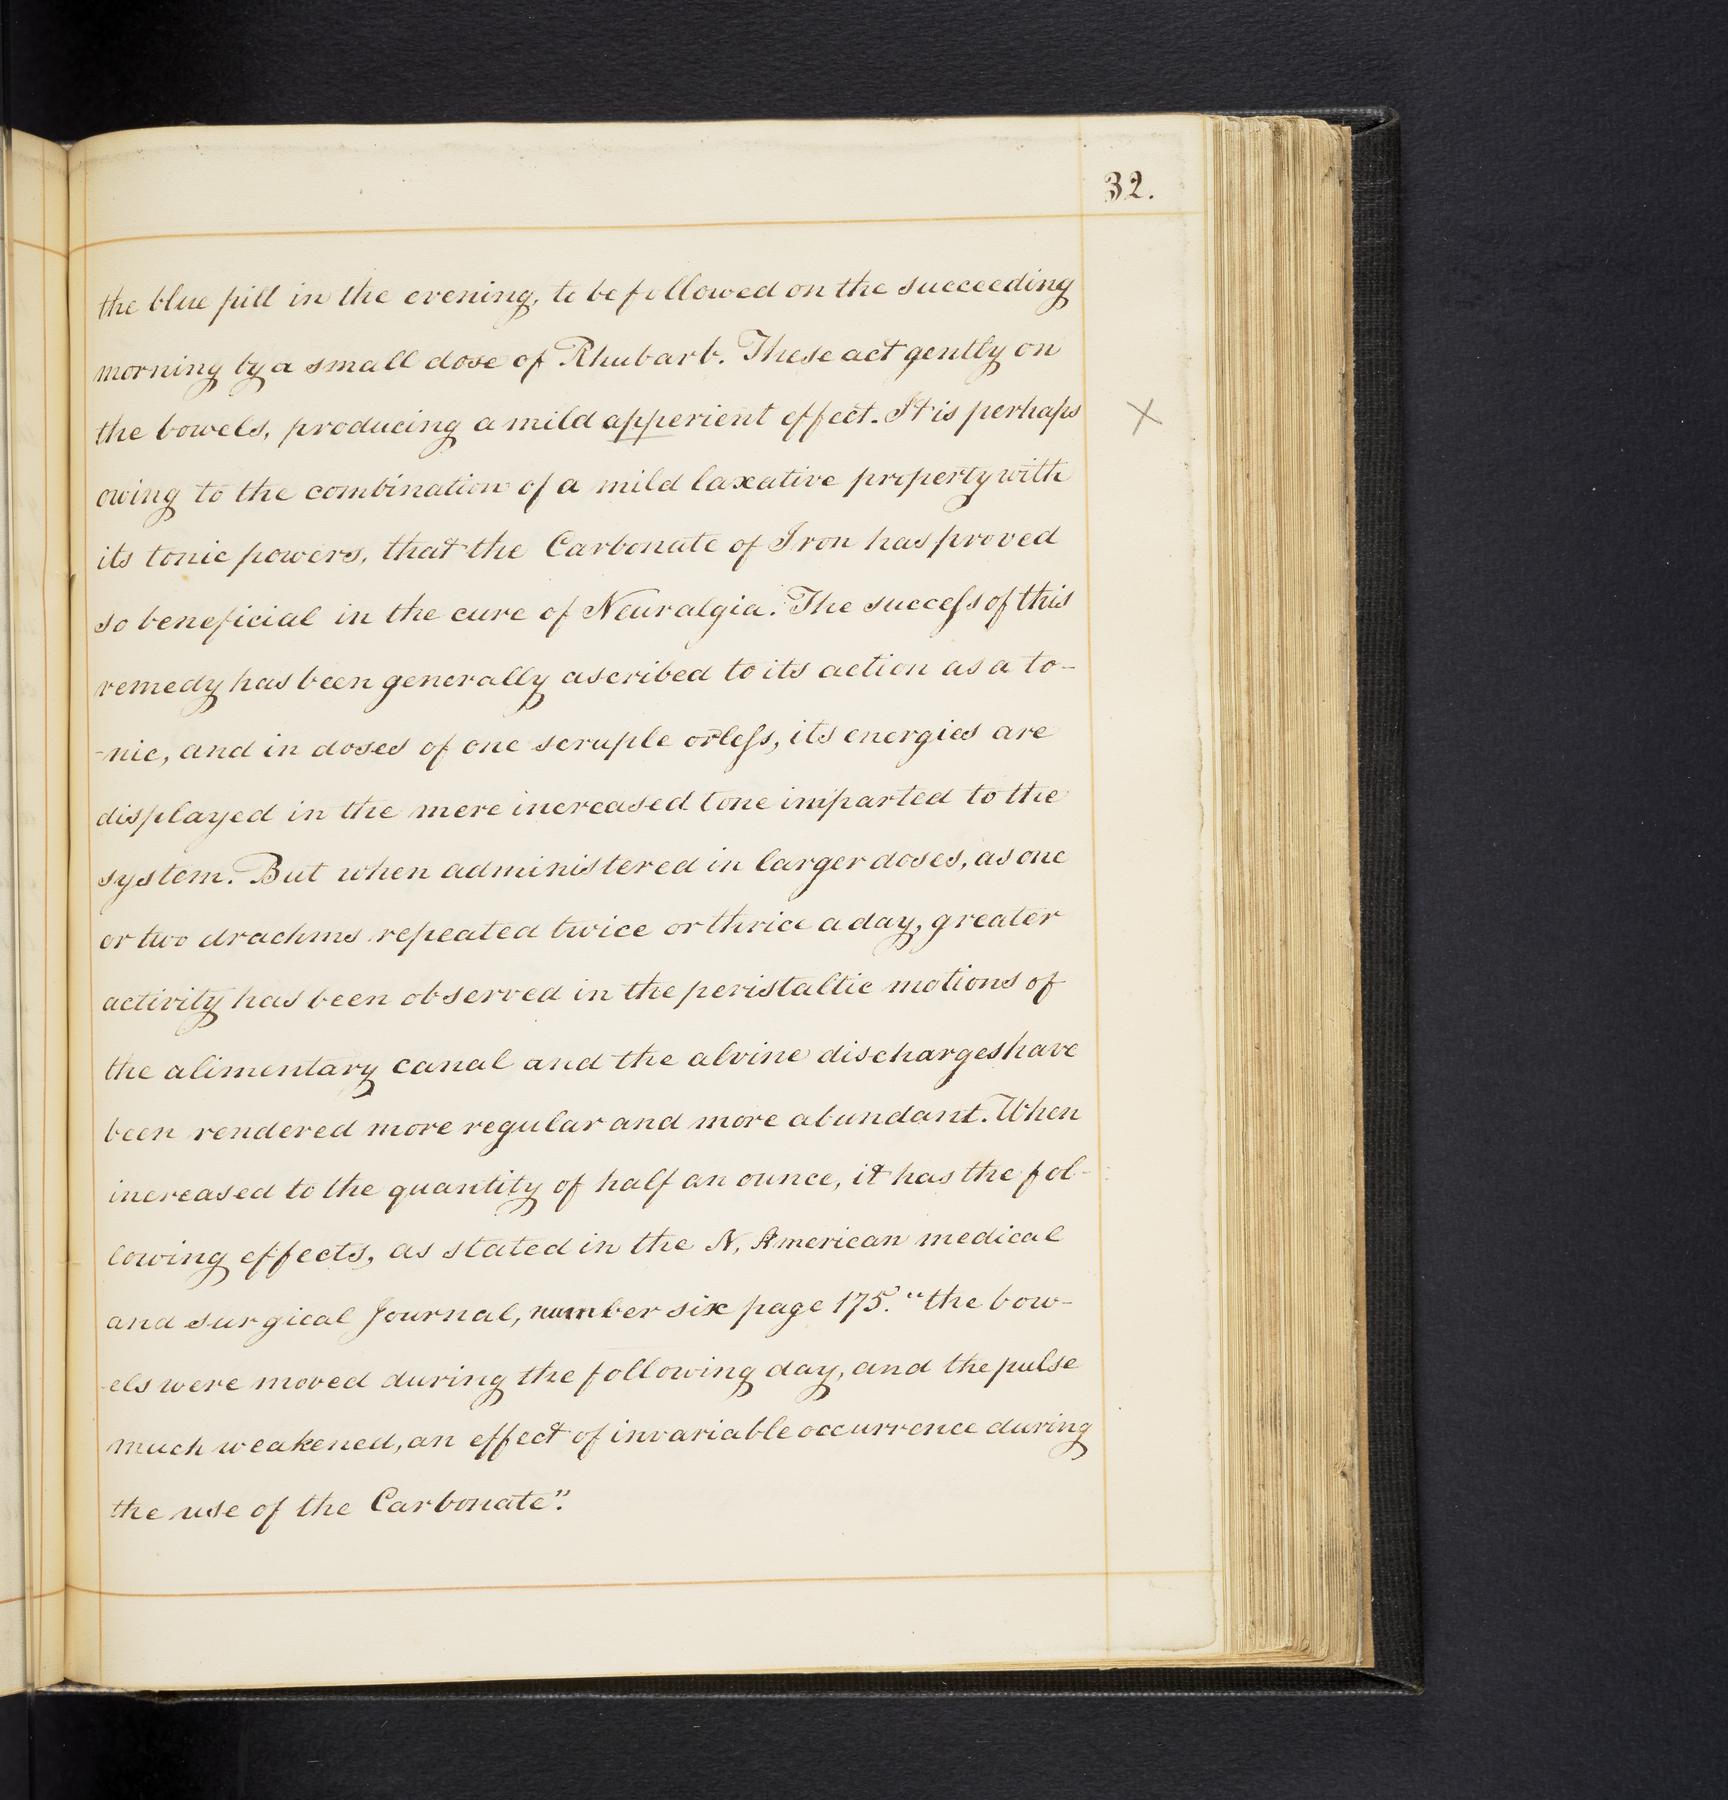 32.
the blue pill in the evening, to be followed on the succeeding
morning by a small dose of Rhubarb. These act gently on
the bowels, producing a mild apperient effect. It is perhaps X
owing to the combination of a mild laxative property with
its tonic powers, that the Carbonate of Iron has proved
so beneficial in the cure of Neuralgia. The succeſs of this
remedy has been generally ascribed to its action as a to-
-nic, and in doses of one scruple or leſs, its energies are
displayed in the mere increased tone imparted to the
system. But when administered in larger doses, as one
or two drachms repeated twice or thrice a day, greater
activity has been observed in the peristaltic motions of
the alimentary canal and the alvine discharges have
been rendered more regular and more abundant. When
increased to the quantity of half an ounce, it has the fol-
lowing effects, as stated in the N. American medical
and surgical Journal, number six page 175. "the bow-
-els were moved during the following day, and the pulse
much weakened, an effect of invariable occurrence during
the use of the Carbonate".